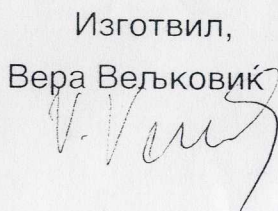 Изготвил,
Вера Вељковиќ